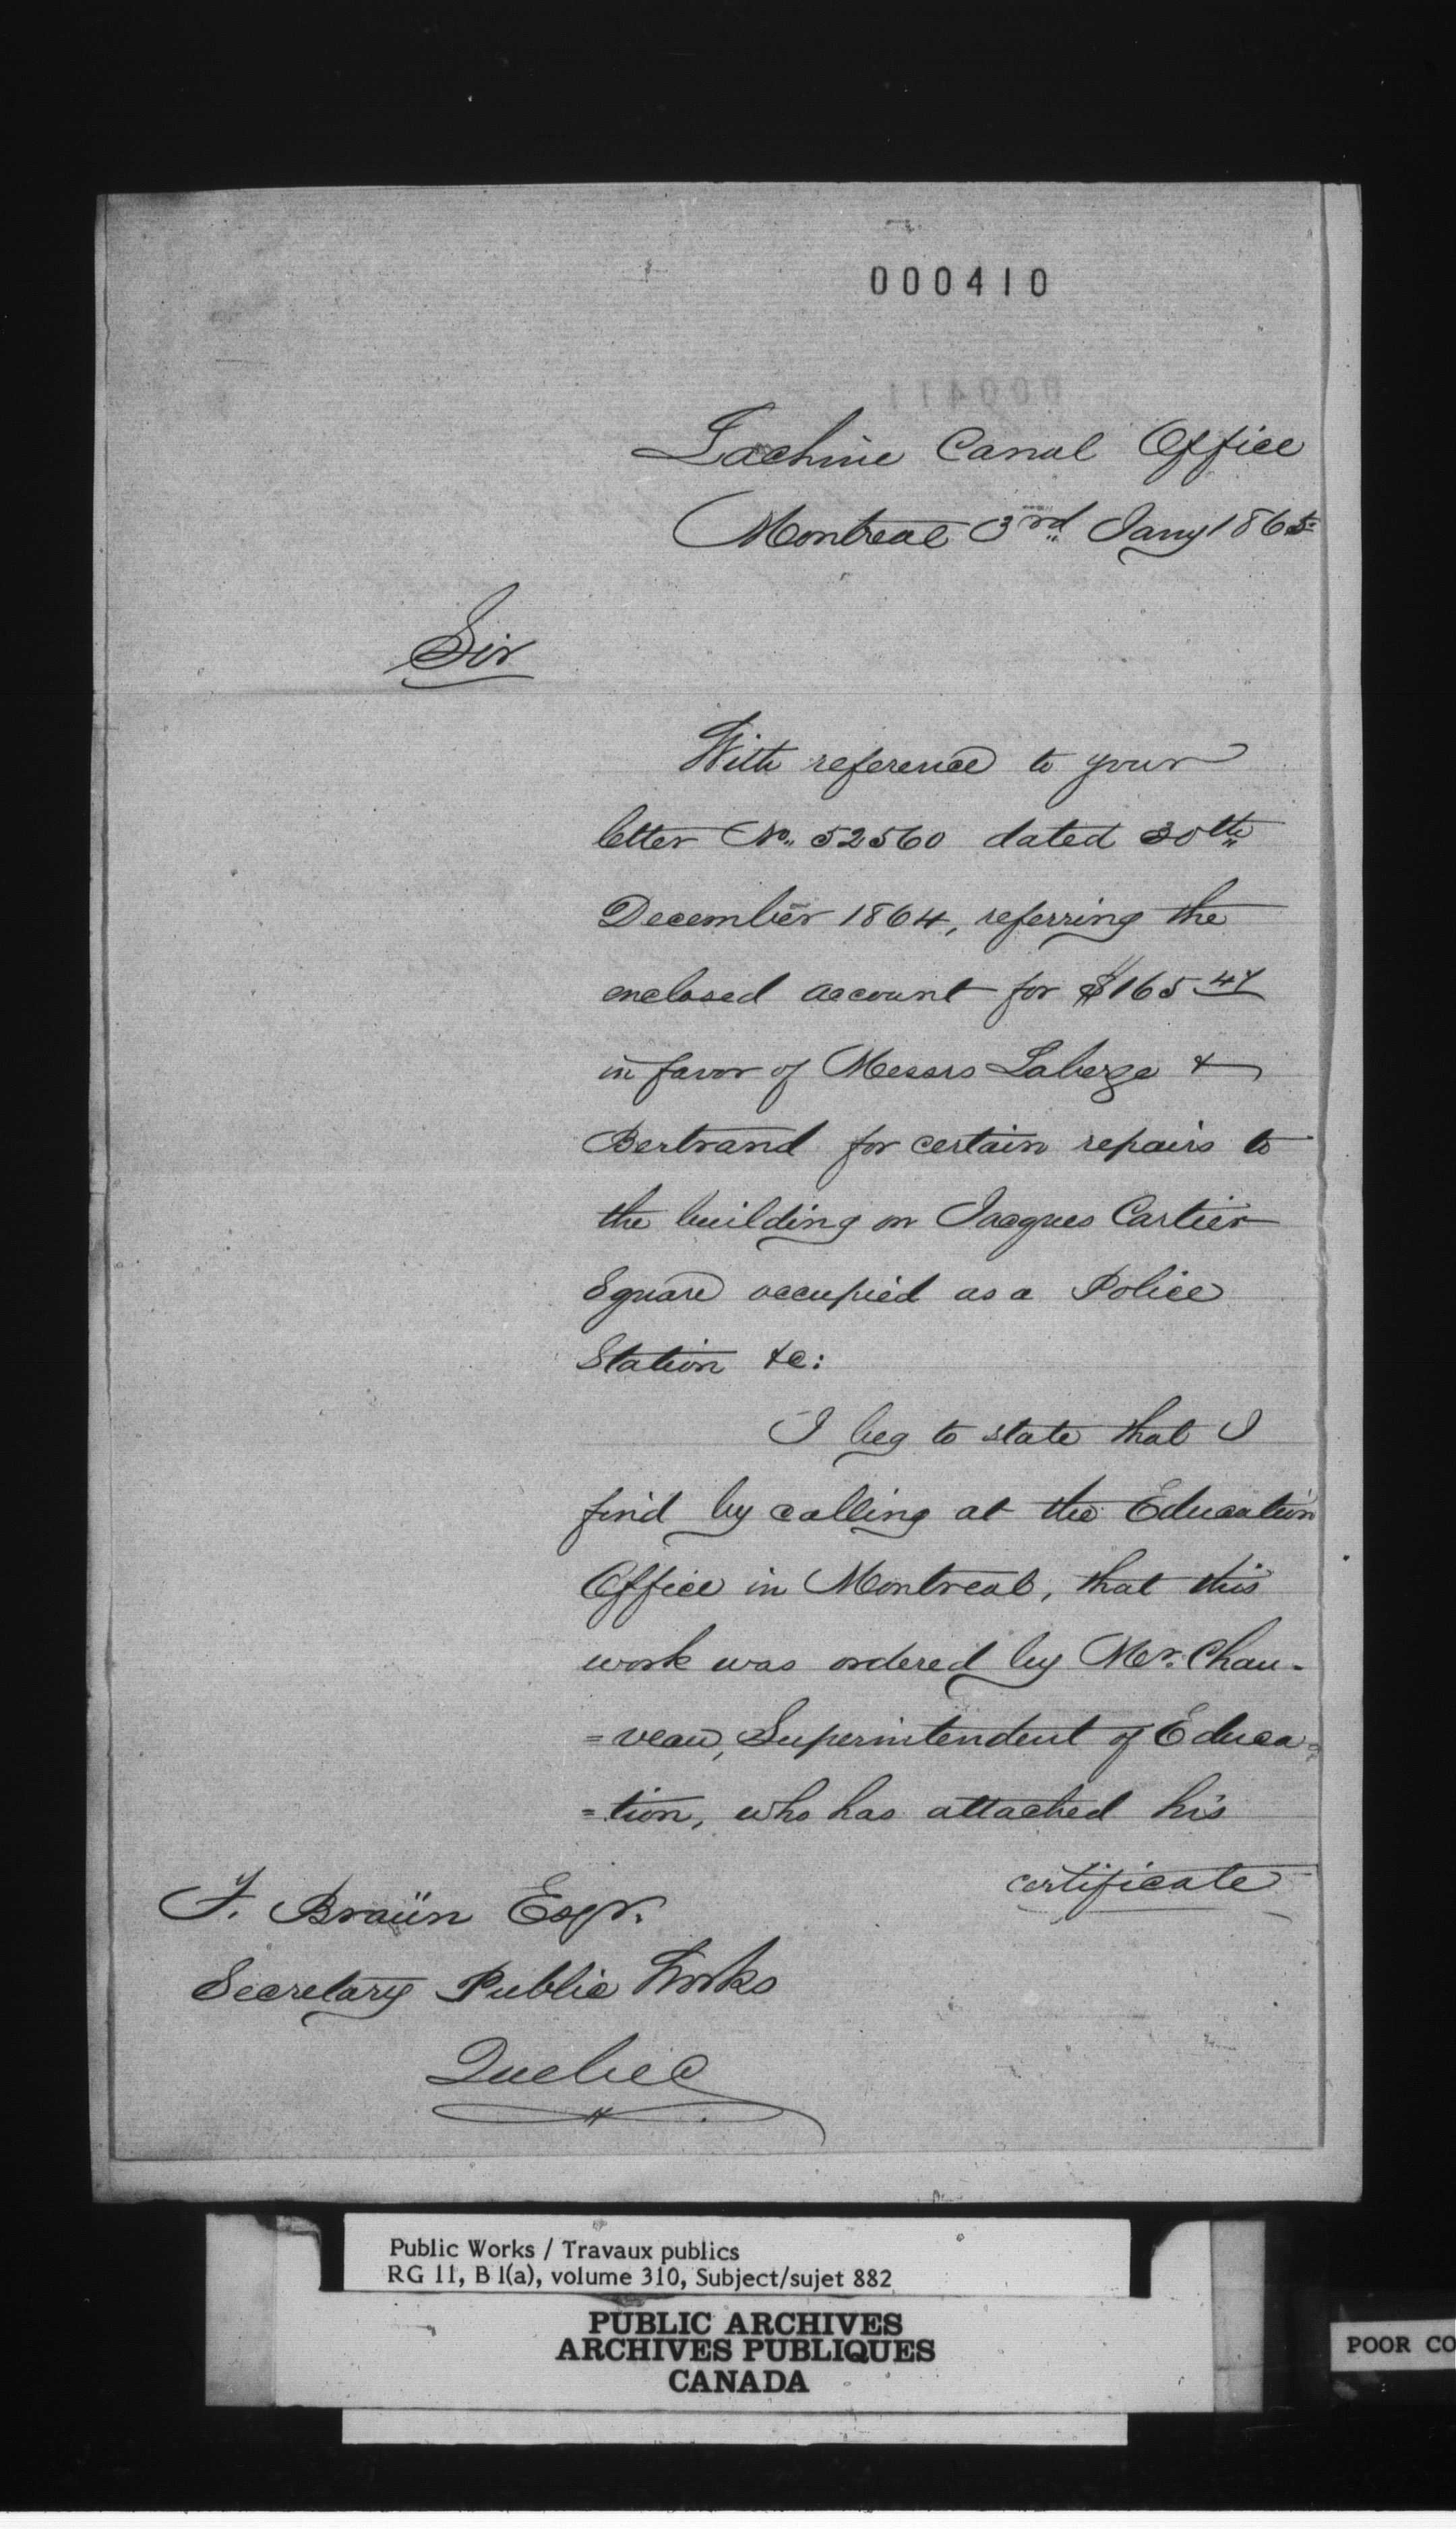 000410
Lachine Canal Office
Montreal 3rd Jany 1865
Sir
With reference to your
letter No. 52560 dated 30th
December 1864, referring the
enclosed account for $165 47
in favor of Messrs Laberge &
Bertrand for certain repairs to
the building on Jacques Cartier
Square occupied as a Police
Station &c:
I beg to state that I
find by calling at the Education
Office in Montreal, that this
work was ordered by Mr. Chau-
=veau, Superintendent of Educa=
=tion, who has attached his
certificate
F. Braün Esqr.
Secretary Public Works
Quebec
Public Works / Travaux publics
RG 11, B 1(a), volume 310, Subject/sujet 882
PUBLIC ARCHIVES
ARCHIVES PUBLIQUES
CANADA
POOR CO